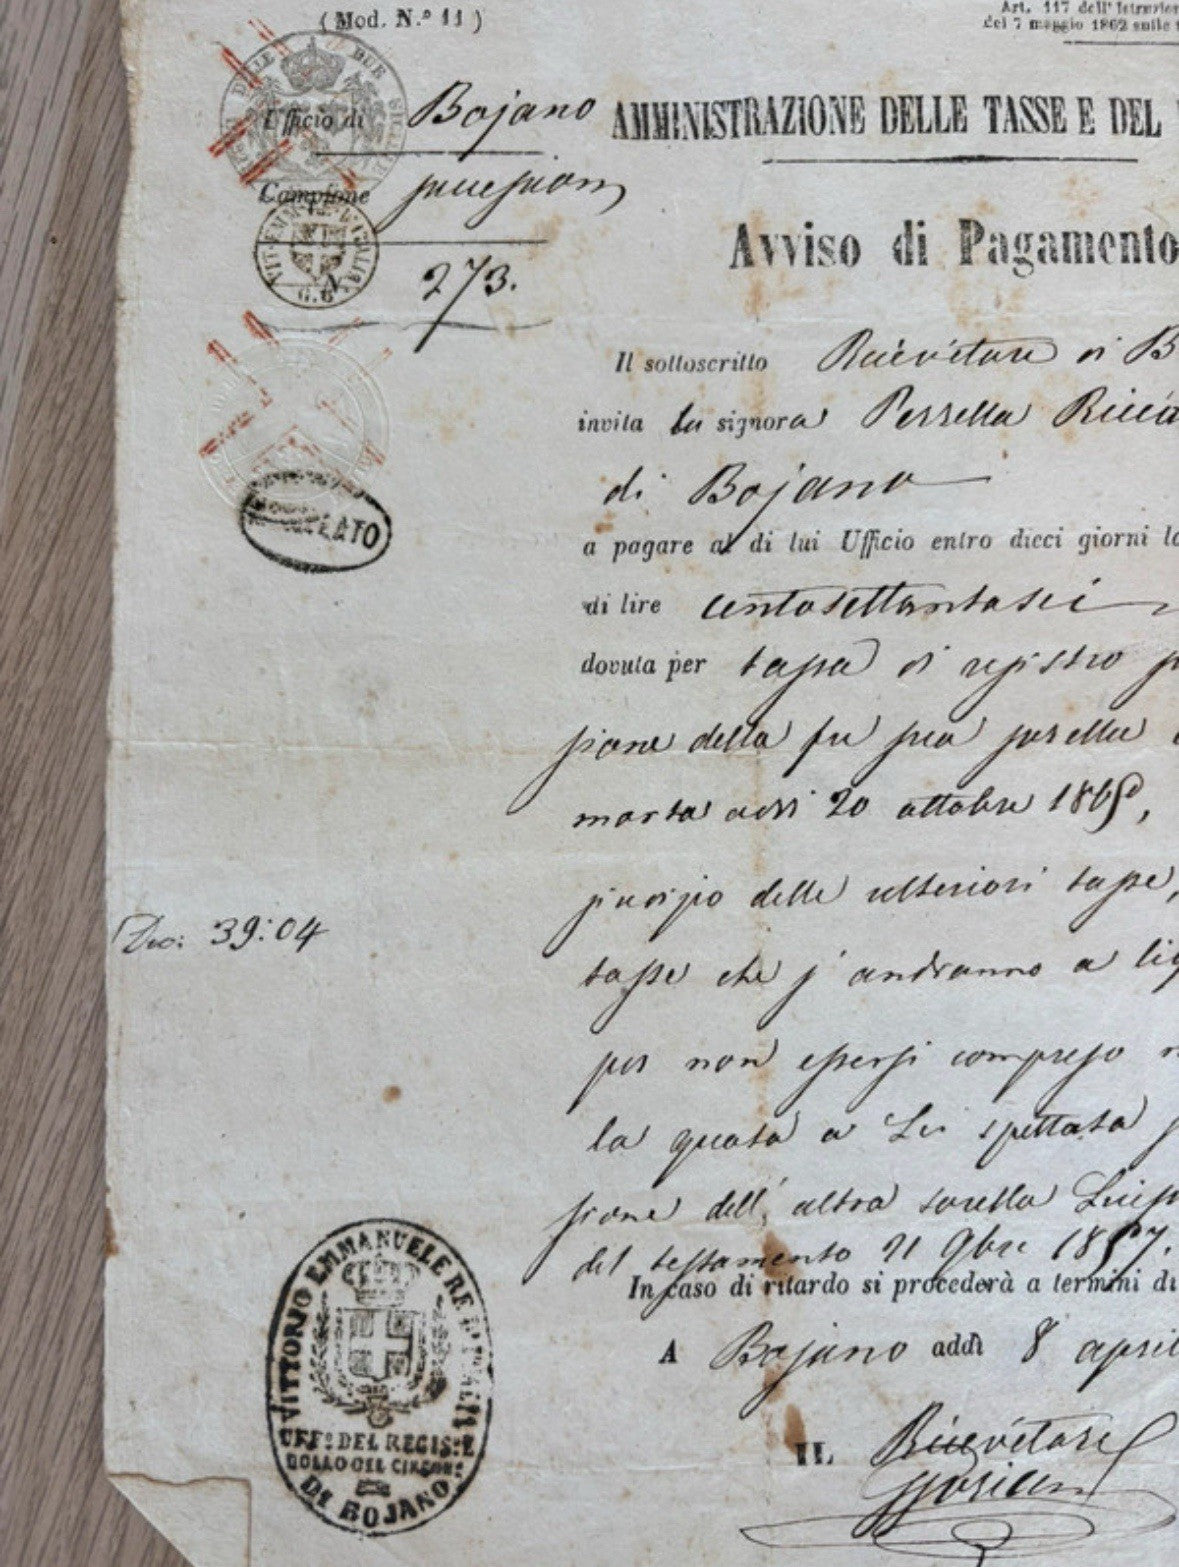 ( Mod. N.º 11 )
Art. 117 dell'Istruzion
del 7 maggio 1862 sulle
DELLE DUE
Ufficio di Bojano
AMMINISTRAZIONE DELLE TASSE E DEL
Campione successioni
273.
Avviso di Pagamento
Il sottoscritto Ricevitore di B
invita la signora Perrella Ricca
di Bojano
a pagare al di lui Ufficio entro dieci giorni la
di lire centosettantasei
dovuta per tassa di registro
sione della fu sua sorella
morta addì 20 ottobre
delle ulteriori tasse,
Dec: 39:04
tasse che s'andranno a liq
per non essersi compreso
la quota a Lei spettata
sione dell'altra sorella
del testamento 21 9bre 1857.
In caso di ritardo si procederà a termini di
A Bojano addì 8 april
IL Ricevitore
VITTORIO EMMANUELE RE D'ITALIA
UFFº DEL REGISº E
BOLLO DEL CIRCONº
DI BOJANO